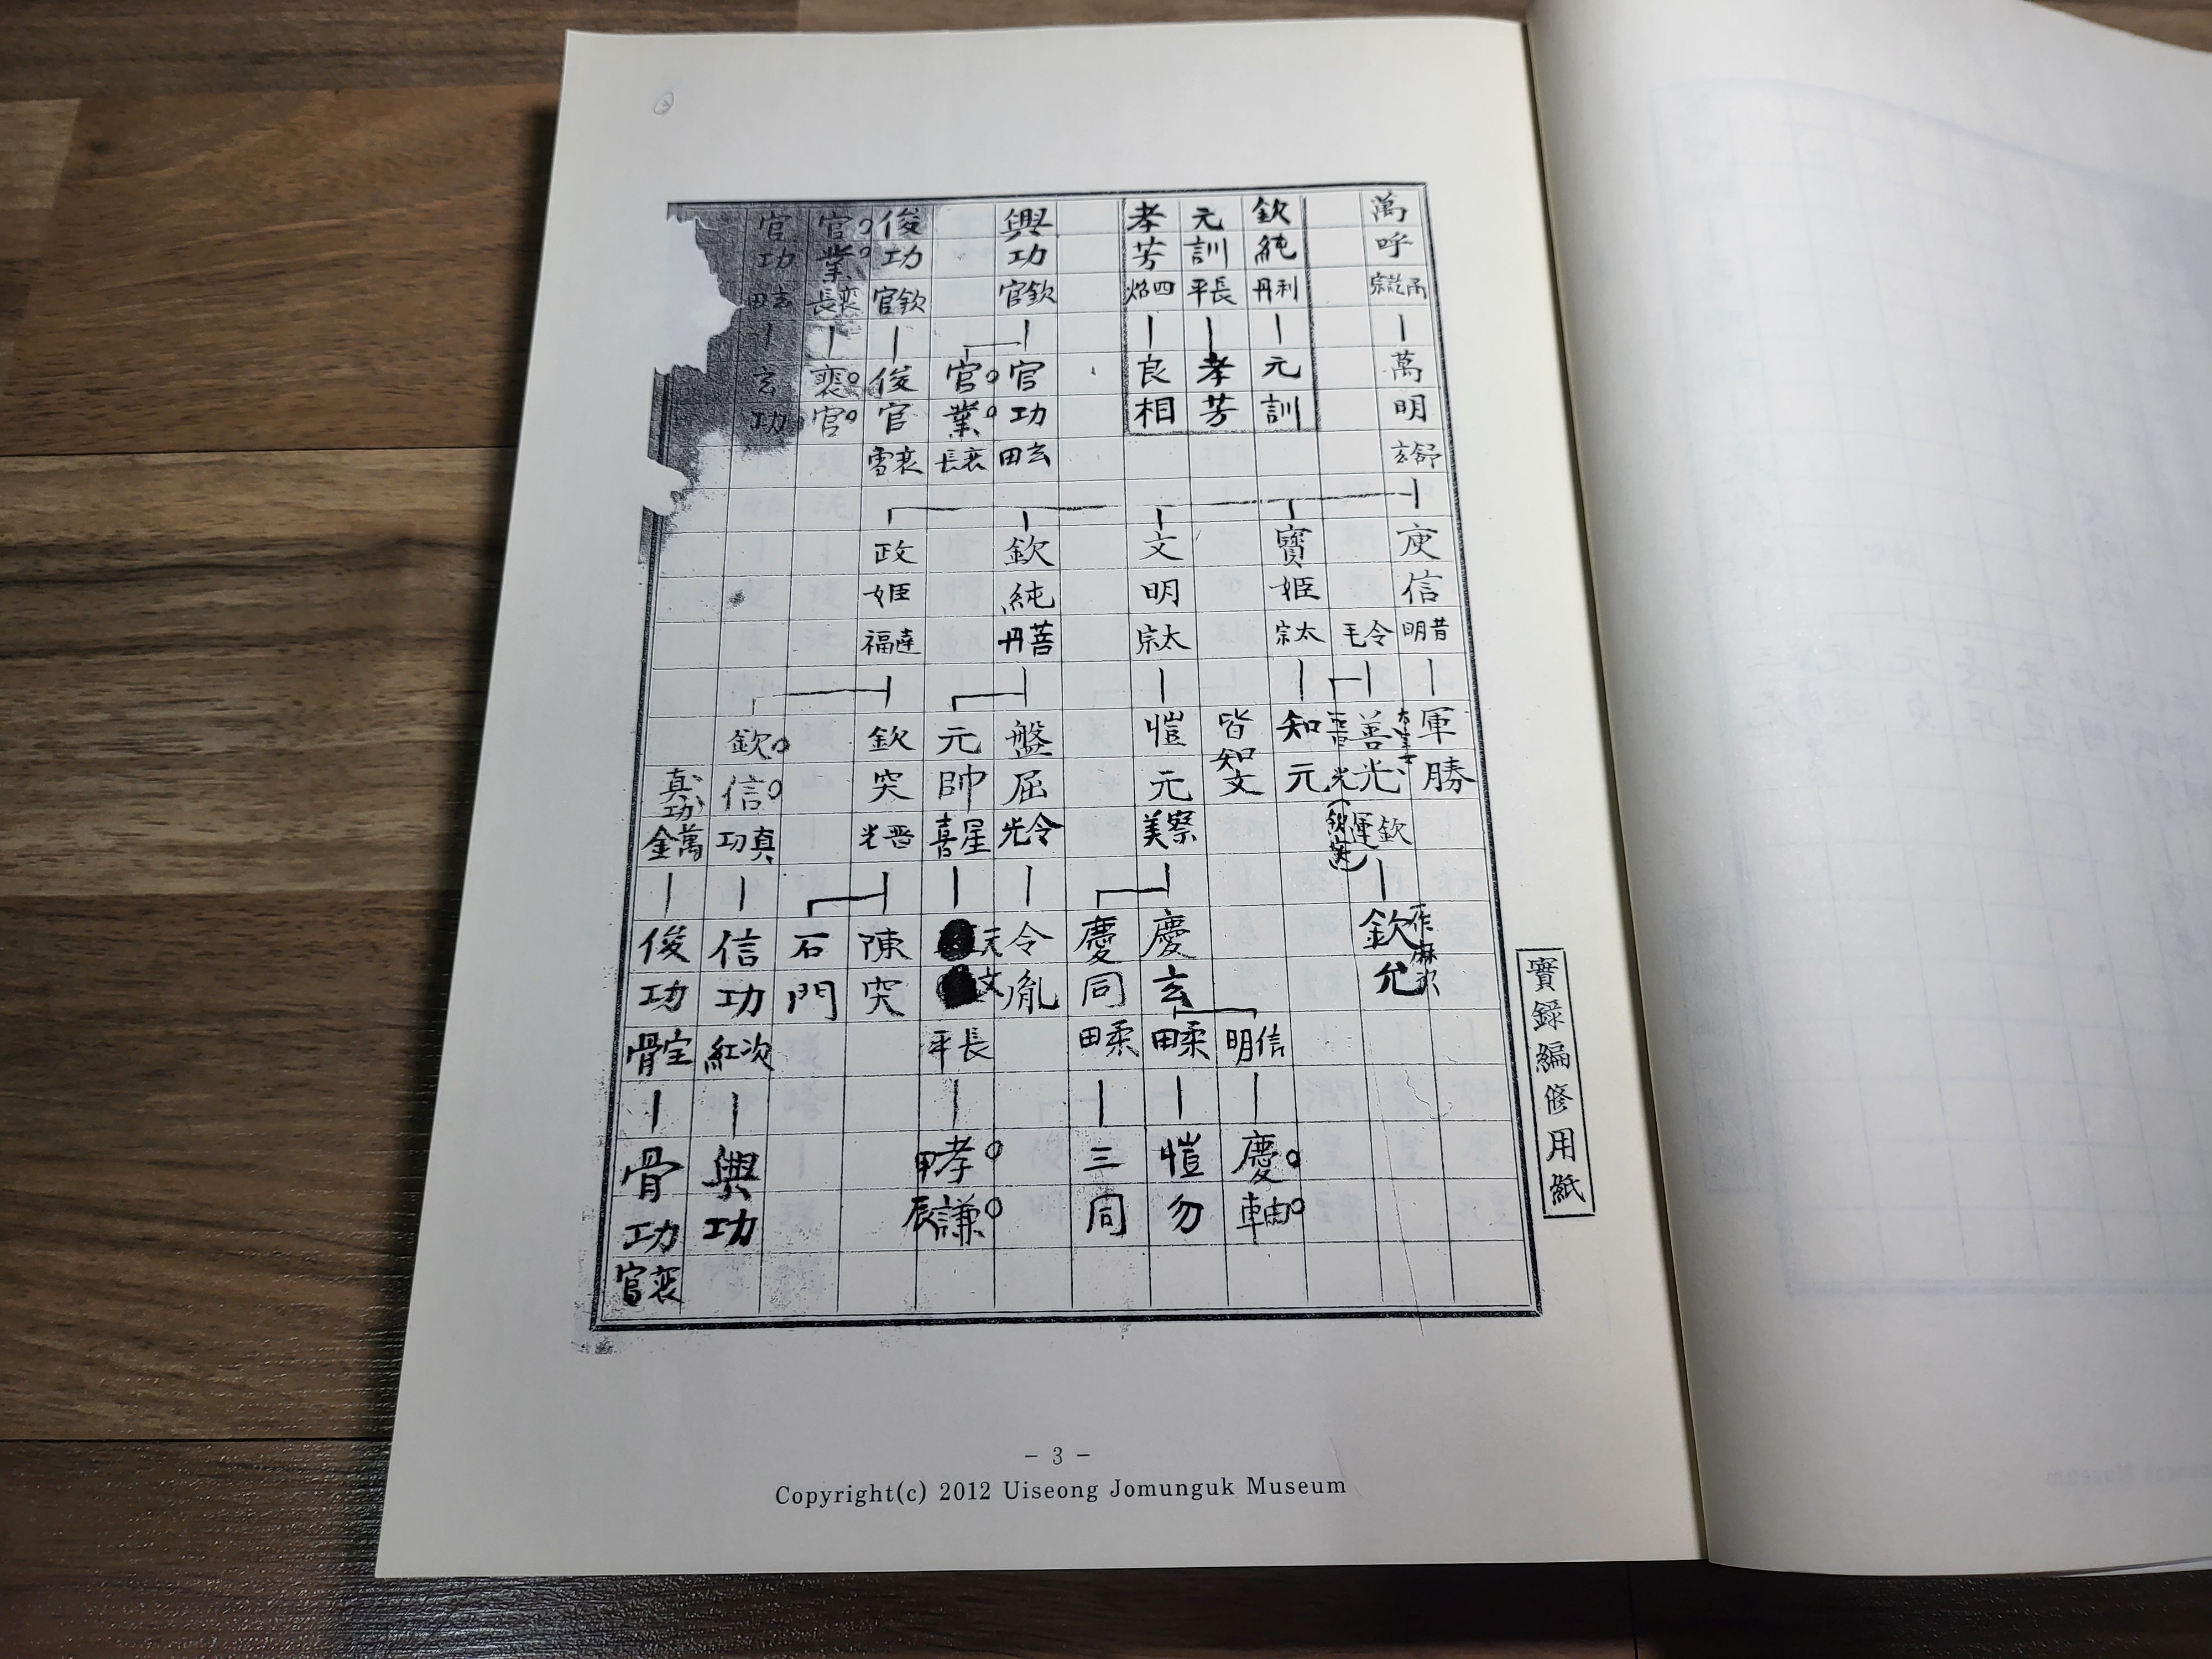 萬呼
萬明 舒玄
庾信 昔明
軍勝
令毛
善光 欽運
欽允 一作麻次
晋光(欽突)
欽純 利丹
元訓
寶姬 太宗
知元
元訓 長平
孝芳
皆知文
信明
慶軸
孝芳 四焰
良相
文明 太宗
愷元 察美
慶玄 柔田
愷勿
慶同 柔田
三同
興功 欽官
官功 玄田
欽純 菩丹
盤屈 令光
令胤
官業 裵長
元帥 星喜
天文 長平
孝謙 甲辰
俊功 欽官
俊官 裵雪
政姬 達福
欽突 晋光
陳突
官業 裵長
裵官
石門
官功 玄田
玄功
欽信 真功
信功 次紅
興功
真功 萬金
俊功 宝骨
骨功 裵官
實錄編修用紙
- 3 -
Copyright(c) 2012 Uiseong Jomunguk Museum